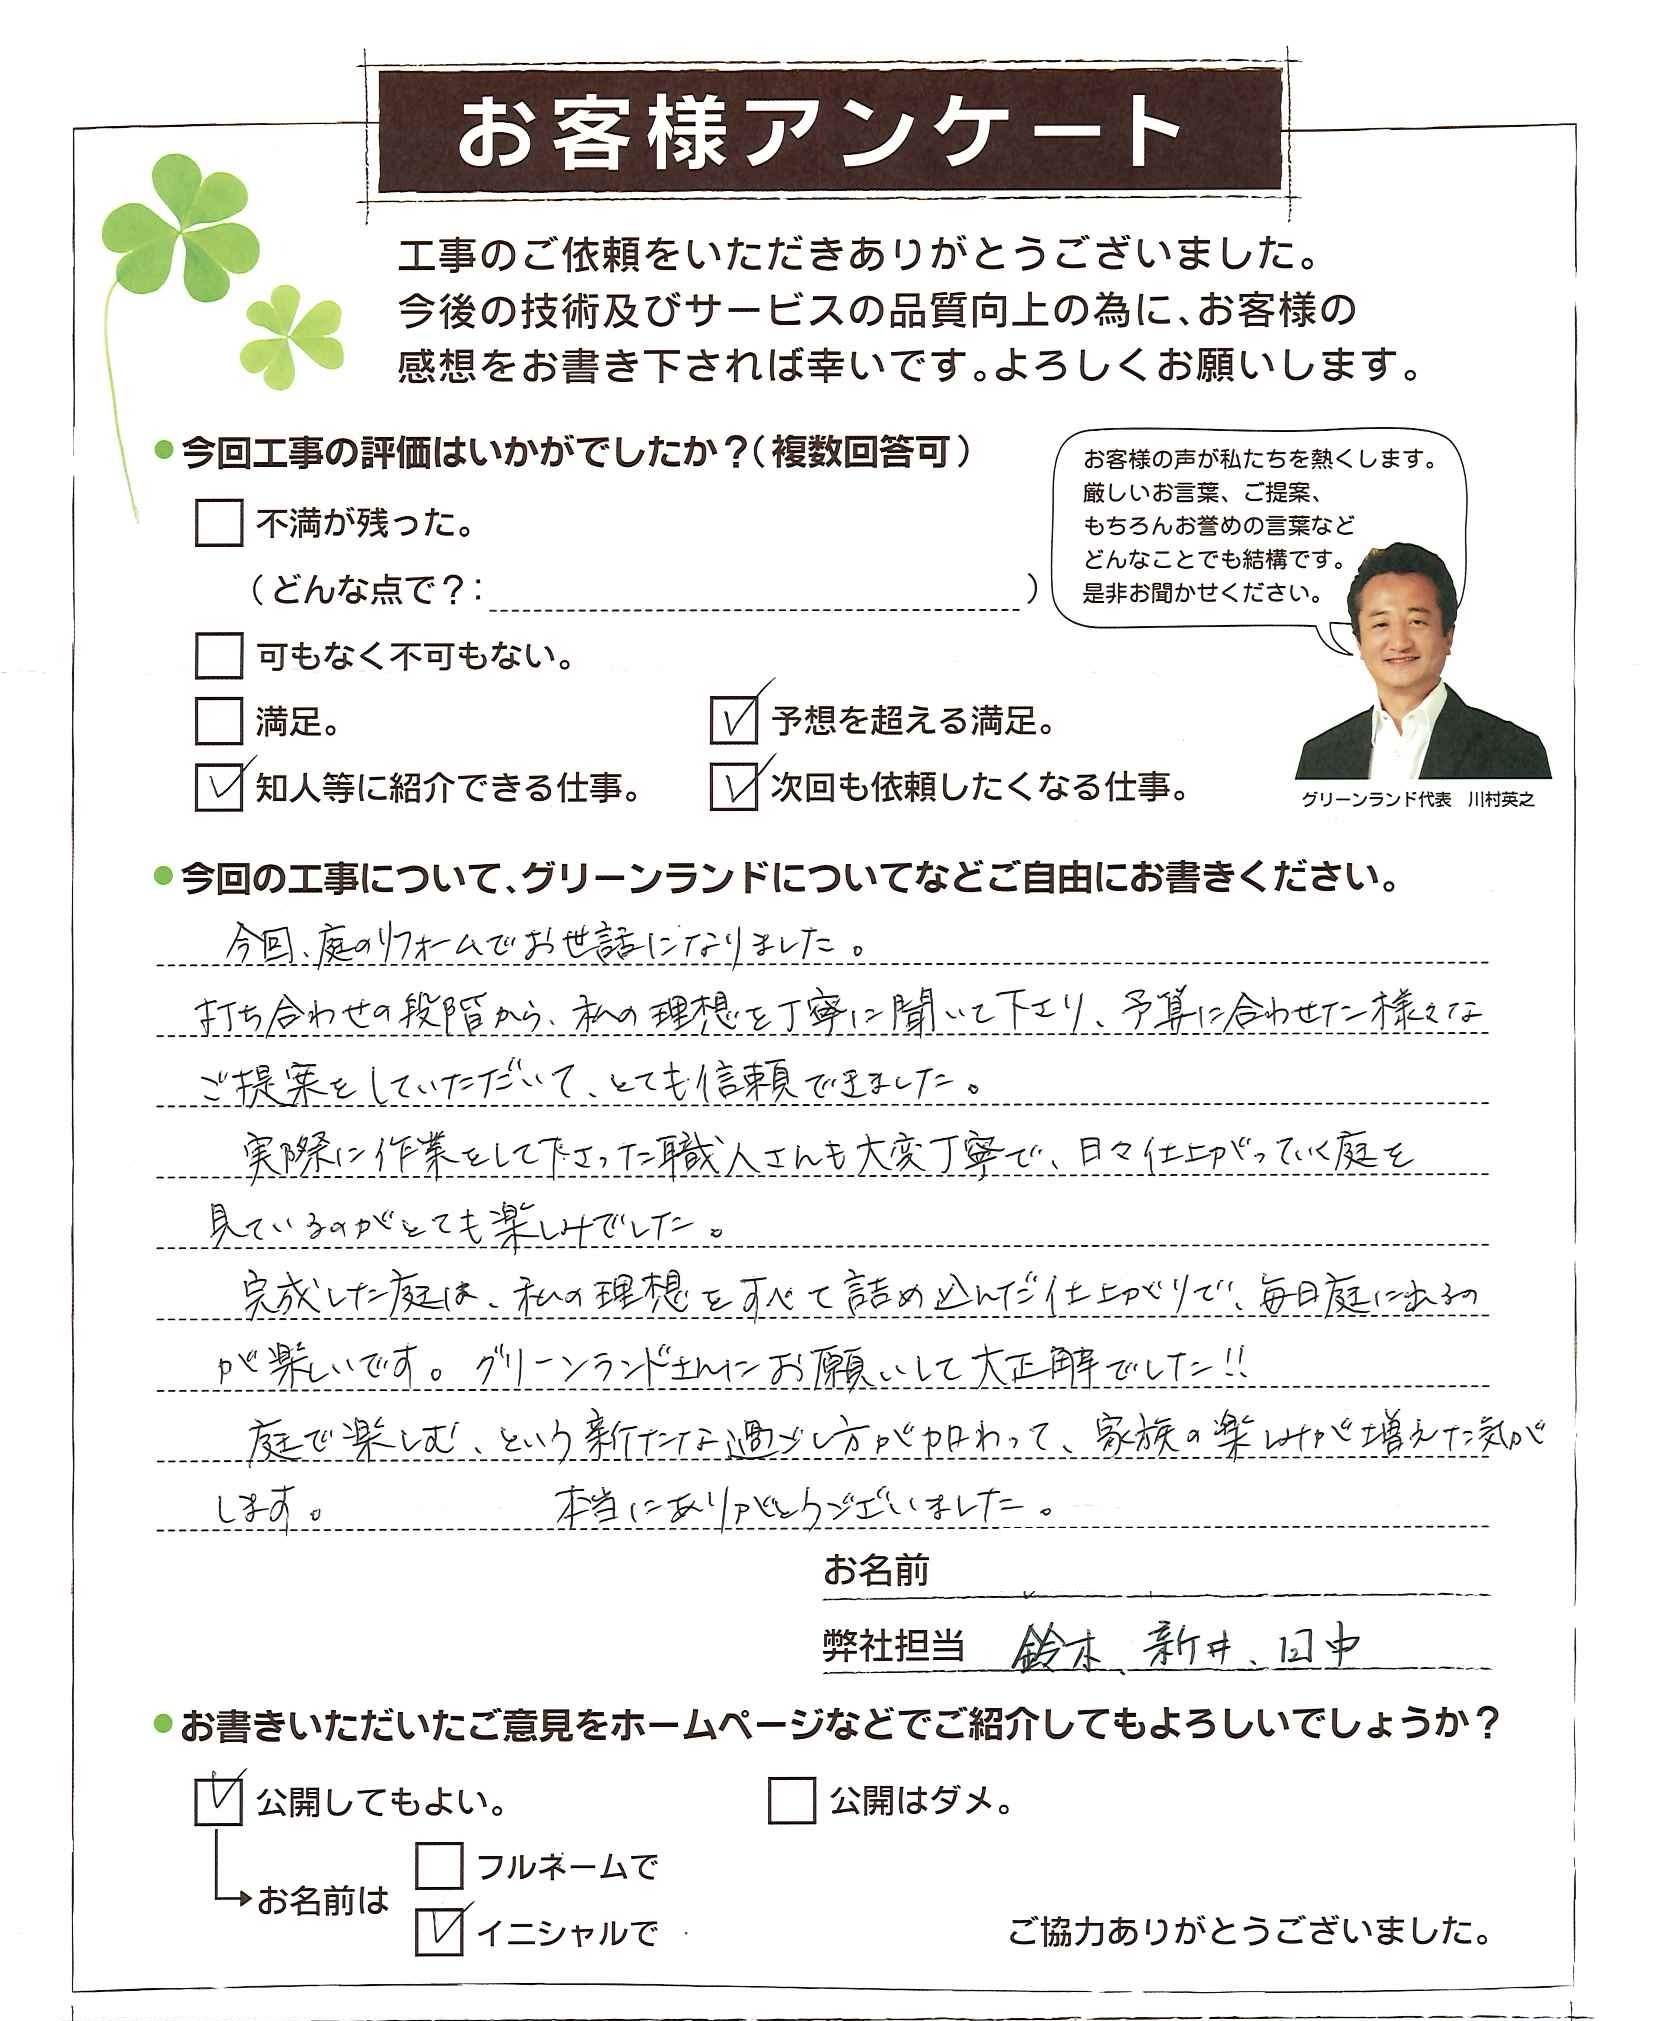 お客様アンケート
工事のご依頼をいただきありがとうございました。
今後の技術及びサービスの品質向上の為に、お客様の
感想をお書き下されば幸いです。よろしくお願いします。
●今回工事の評価はいかがでしたか？（複数回答可）
お客様の声が私たちを熱くします。
厳しいお言葉、ご提案、
もちろんお誉めの言葉など
どんなことでも結構です。
是非お聞かせください。
不満が残った。
（どんな点で？：　）
可もなく不可もない。
満足。
予想を超える満足。
知人等に紹介できる仕事。
次回も依頼したくなる仕事。
グリーンランド代表　川村英之
●今回の工事について、グリーンランドについてなどご自由にお書きください。
今回、庭のリフォームでお世話になりました。
打ち合わせの段階から、私の理想を丁寧に聞いて下さり、予算に合わせた様々な
ご提案をしていただいて、とても信頼できました。
実際に作業をして下さった職人さんも大変丁寧で、日々仕上がっていく庭を
見ているのがとても楽しみでした。
完成した庭は、私の理想をすべて詰め込んだ仕上がりで、毎日庭に出るの
が楽しいです。グリーンランドさんにお願いして大正解でした!!
庭で楽しむ、という新たな過ごし方が加わって、家族の楽しみが増えた気が
します。　本当にありがとうございました。
お名前
弊社担当　鈴木、新井、田中
●お書きいただいたご意見をホームページなどでご紹介してもよろしいでしょうか？
公開してもよい。
公開はダメ。
フルネームで
お名前は
イニシャルで
ご協力ありがとうございました。